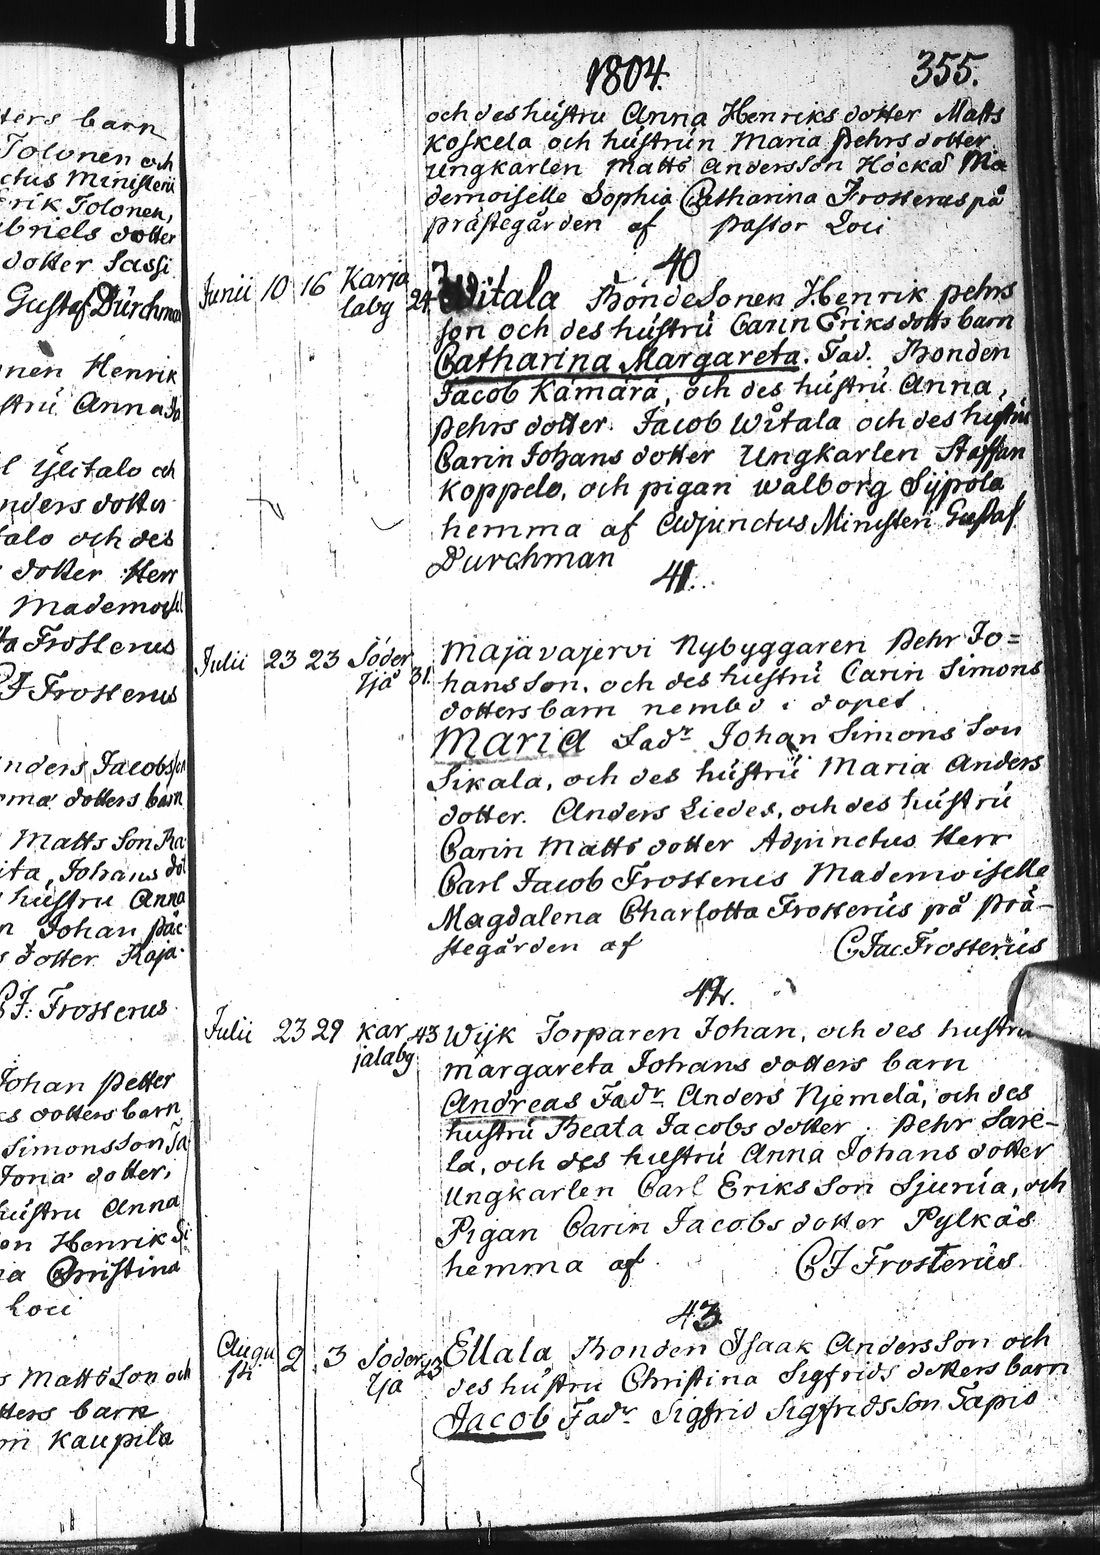 ters barn
Tolonen och
ctus Ministerii
rik Tolonen,
ibriels dotter
dotter Sassi
Gustaf Dürchman
nen Henrik
stru Anna Jo
l Ylitalo och
nders dotter
talo och des
dotter Herr
Mademoisel
ta Frosterus
CJ Frosterus
nders Jacobsson
oma dotters barn
Matts Son Ra
ita, Johans dot
hustru Anna
n Johan Päc
s dotter Raja
CJ. Frosterus
Johan Petter
ks dotters barn
Simonsson Ta
Jona dotter,
hustru Anna
en Henrik Si
na Christina
Loci
s Mattsson och
tters barn
m Kaupila
1804. 355.
och des hustru Anna Henriks dotter Matts
Koskela och hustrun Maria Pehrs dotter
ungkarlen Matts Andersson Höckå Ma
demoiselle Sophia Catharina Frosterus på
prästegården af Pastor Loci
40
Junii 10 16 Karja
laby 24
Witala Bondesonen Henrik Pehrs
son och des hustru Carin Eriks dotts barn
Catharina Margareta. Fad. Bonden
Jacob Kämärä, och des hustru Anna,
Pehrs dotter. Jacob Witala och des hustru
Carin Johans dotter Ungkarlen Staffan
Koppelo, och pigan Walborg Sijpola
hemma af Adjunctus Ministeri Gustaf
Durchman
41.
Julii 23 23 Söder
Yjå 31.
Majavajervi Nybyggaren Pehr Jo=
hansson, och des hustru Carin Simons
dotters barn nembd i dopet
Maria Fadr Johan Simons Son
Sikala, och des hustru Maria Anders
dotter. Anders Liedes, och des hustru
Carin Matts dotter Adjunctus Herr
Carl Jacob Frosterus Mademoiselle
Magdalena Charlotta Frosterus på Prä-
stegården af C Jac. Frosterus
42.
Julii 23 29 Kar
jalaby 43
Wijk Torparen Johan, och des hustru
Margareta Johans dotters barn
Andreas Fadr Anders Njemelä, och des
hustru Beata Jacobs dotter. Pehr Sare-
la, och des hustru Anna Johans dotter
Ungkarlen Carl Eriks Son Sjurua, och
Pigan Carin Jacobs dotter Pylkäs
hemma af CJ Frosterus
43.
Augu
sti 2 3 Söder
Yjå 23
Ellala Bonden Isaak Andersson och
des hustru Christina Sigfrids dotters barn
Jacob Fadr Sigfrid Sigfridsson Tapio